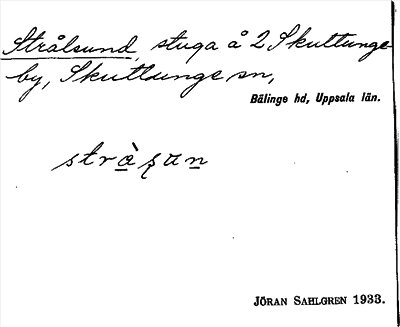 Strålsund, stuga å 2 Skuttunge
by, Skuttunge sn,
Bälinge hd, Uppsala län.
JÖRAN SAHLGREN 1933.